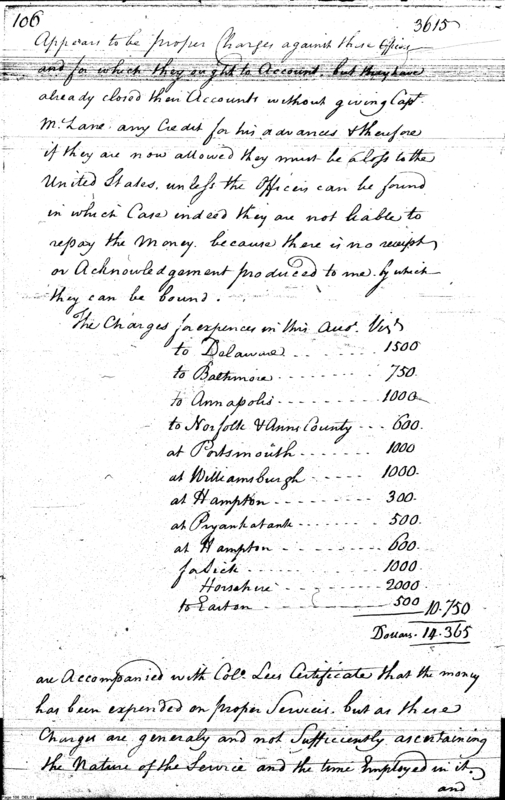 106
3615
Appears to be proper Charges against these Officers
and for which they ought to Account, but they have
already closed their Accounts without giving Capt.
McLane any Credit for his advances & therefore
if they are now allowed they must be a loss to the
United States, unless the Officers can be found
in which Case indeed they are not liable to
repay the Money. because there is no receipt
or Acknowledgement produced to me by which
they can be bound.
The Charges for expences in this Auot. Vizt
to Delaware 1500
to Balthmore 750.
to Annapolis 1000
to Norfolk & Anns County 600.
at Portsmouth 1000
at Williamsburgh 1000.
at Hampton 300.
at Pyankatank 500.
at Hampton 600.
for Sick 1000
Horsehire 2000
to Easton 500 10.750
Dollars. 14.365
are Accompanied with Colo. Lees Certificate that the money
has been expended on proper Services. but as these
Charges are generaly and not Sufficiently ascertaining
the Nature of the Service and the time Employed in it.
and